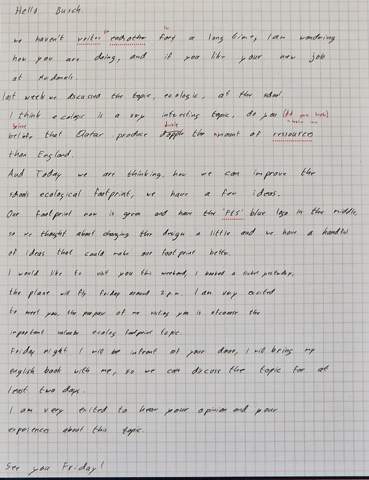 Hello Burch
we haven't writen eachother for a long time, I am wondering
how you are doing, and if you like your new job
at
last week we discussed the topic, ecologic, at the school.
I think ecologic is a very interesting topic, do you
belive that Qatar produce double the amount of ressources
than England.
And Today we are thinking, how we can improve the
schools ecological footprint, we have a few ideas.
Our footprint now is green and have the "FES" blue logo in the middle,
so we thought about changing the design a little and we have a handful
of ideas that could make our footprint better.
I would like to visit you this weekend, I booked a ticket yesterday,
the plane will fly Friday around 2 p.m. I am very excited
to meet you, the purpose of me visting you is ofcourse the
important ecolog footprint topic.
Friday night I will be infront of your door, I will bring my
english book with me, so we can discuss the topic for at
least two days
I am very exited to hear your opinion and your
experiences about this topic.
See you Friday!